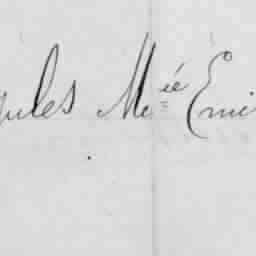 Jules M^ie Emi